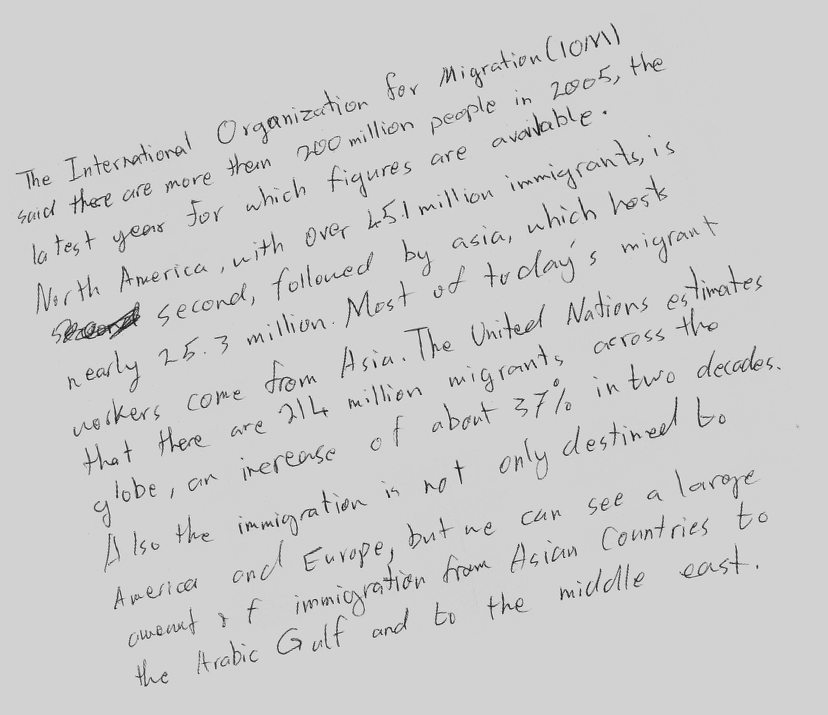 The International Organization for Migration (IOM)
said there are more then 200 million people in 2005, the
latest year for which figures are available.
North America, with over 45.1 million immigrants, is
second, followed by asia, which hosts
nearly 25.3 million. Most of today's migrant
workers come from Asia. The United Nations estimates
that there are 214 million migrants across the
globe, an increase of about 37% in two decades.
Also the immigration is not only destined to
America and Europe, but we can see a large
amount of immigration from Asian Countries to
the Arabic Gulf and to the middle east.